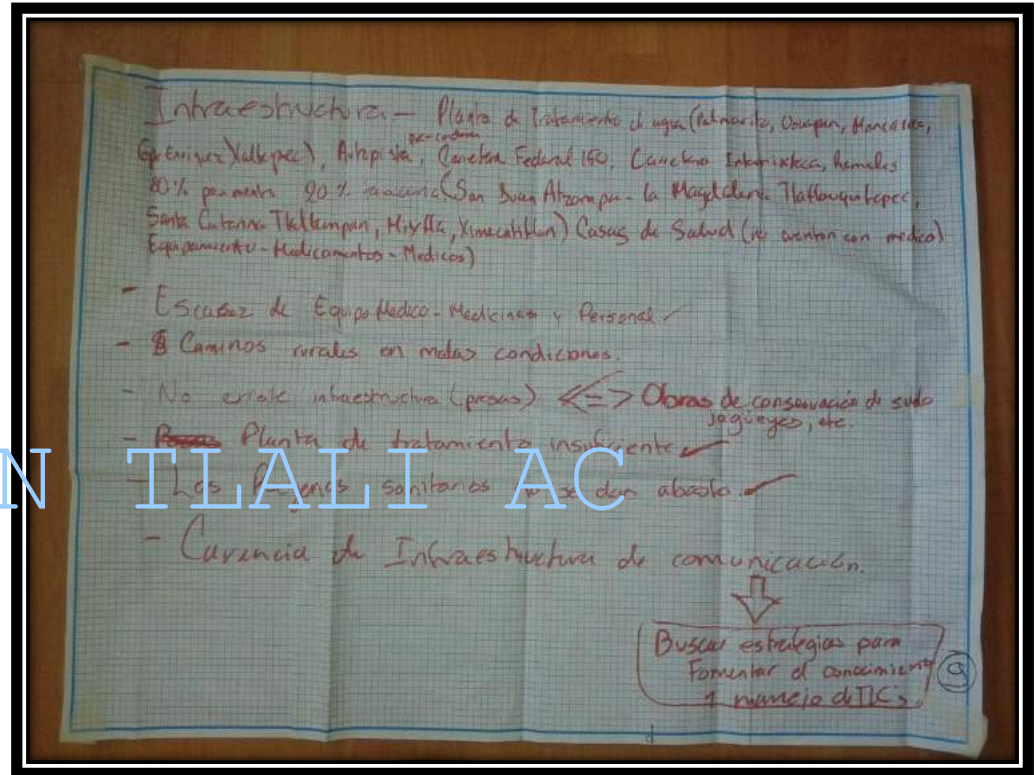 Infraestructura — Planta de Tratamiento de agua (Palmarito, Cuyapan, 
Gpe Enriquez Xaltepec), Autopista, Carretera Federal 150, Carretera Intermixteca, Ramales
80% 20% (San Juan Atzompa - la Magdalena Tlatlauquitepec,
Santa Catarina Tlaltempan, Mixtla, Ximecatitlan) Casas de Salud (no cuentan con medico)
Equipamiento - Medicamentos - Medicos)
- Escasez de Equipo Medico - Medicinas y Personal
- Caminos rurales en malas condiciones.
- No existe infraestructura (presas) <=> Obras de conservación de suelo
jagüeyes, etc.
- Planta de tratamiento insuficiente
N TLALI AC
- Los sanitarios no se dan abasto.
- Carencia de Infraestructura de comunicación.
Buscar estrategias para
Fomentar el conocimiento
y manejo de TIC's.
9